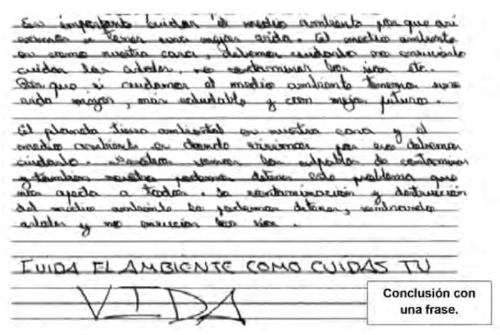 Es importante cuidar el medio ambiente por que asi
vamos a tener una mejor vida. El medio ambiente
es como nuestra casa, debemos cuidarlo no
cuidar los arboles, no contaminar los rios etc.
Por que si cuidamos el medio ambiente tenemos una
vida mejor, mas saludable y con mejor futuro.
El planeta tierra es nuestra casa y el
medio ambiente es donde vivimos por eso debemos
cuidarlo. Nosotros somos los culpables de contaminar
y tambien nosotros podemos detener este problema que
nos a todos. La contaminación y destrucción
del medio ambiente la podemos detener, sembrando
arboles y no los rios.
CUIDA EL AMBIENTE COMO CUIDAS TU
VIDA
Conclusión con
una frase.